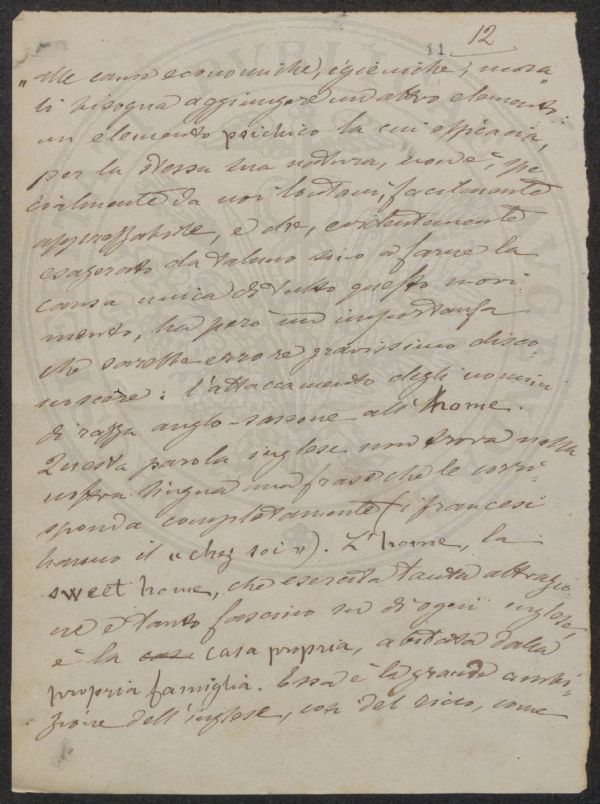 11 12
"alle cause economiche, igieniche, mora-
li bisogna aggiungere un altro elemento:
un elemento psichico la cui efficacia,
per la stessa sua natura, non è, spe
cialmente da noi lontani, facilmente
apprezzabile, e che, evidentemente
esagerato da taluno sino a farne la
causa unica di tutto questo movi
mento, ha però un'importanza
che sarebbe errore gravissimo disco-
noscere: l'attaccamento degli uomini
di razza anglo-sassone all'home.
Questa parola inglese non trova nella
nostra lingua una frase che le corri
sponda completamente (i francesi
hanno il "chez soi"). L'home, la
sweet home, che esercita tanta attrazio
ne e tanto fascino su di ogni inglese,
è la cas casa propria, abitata dalla
propria famiglia. Essa è la grande ambi-
zione dell'inglese, così del ricco, come